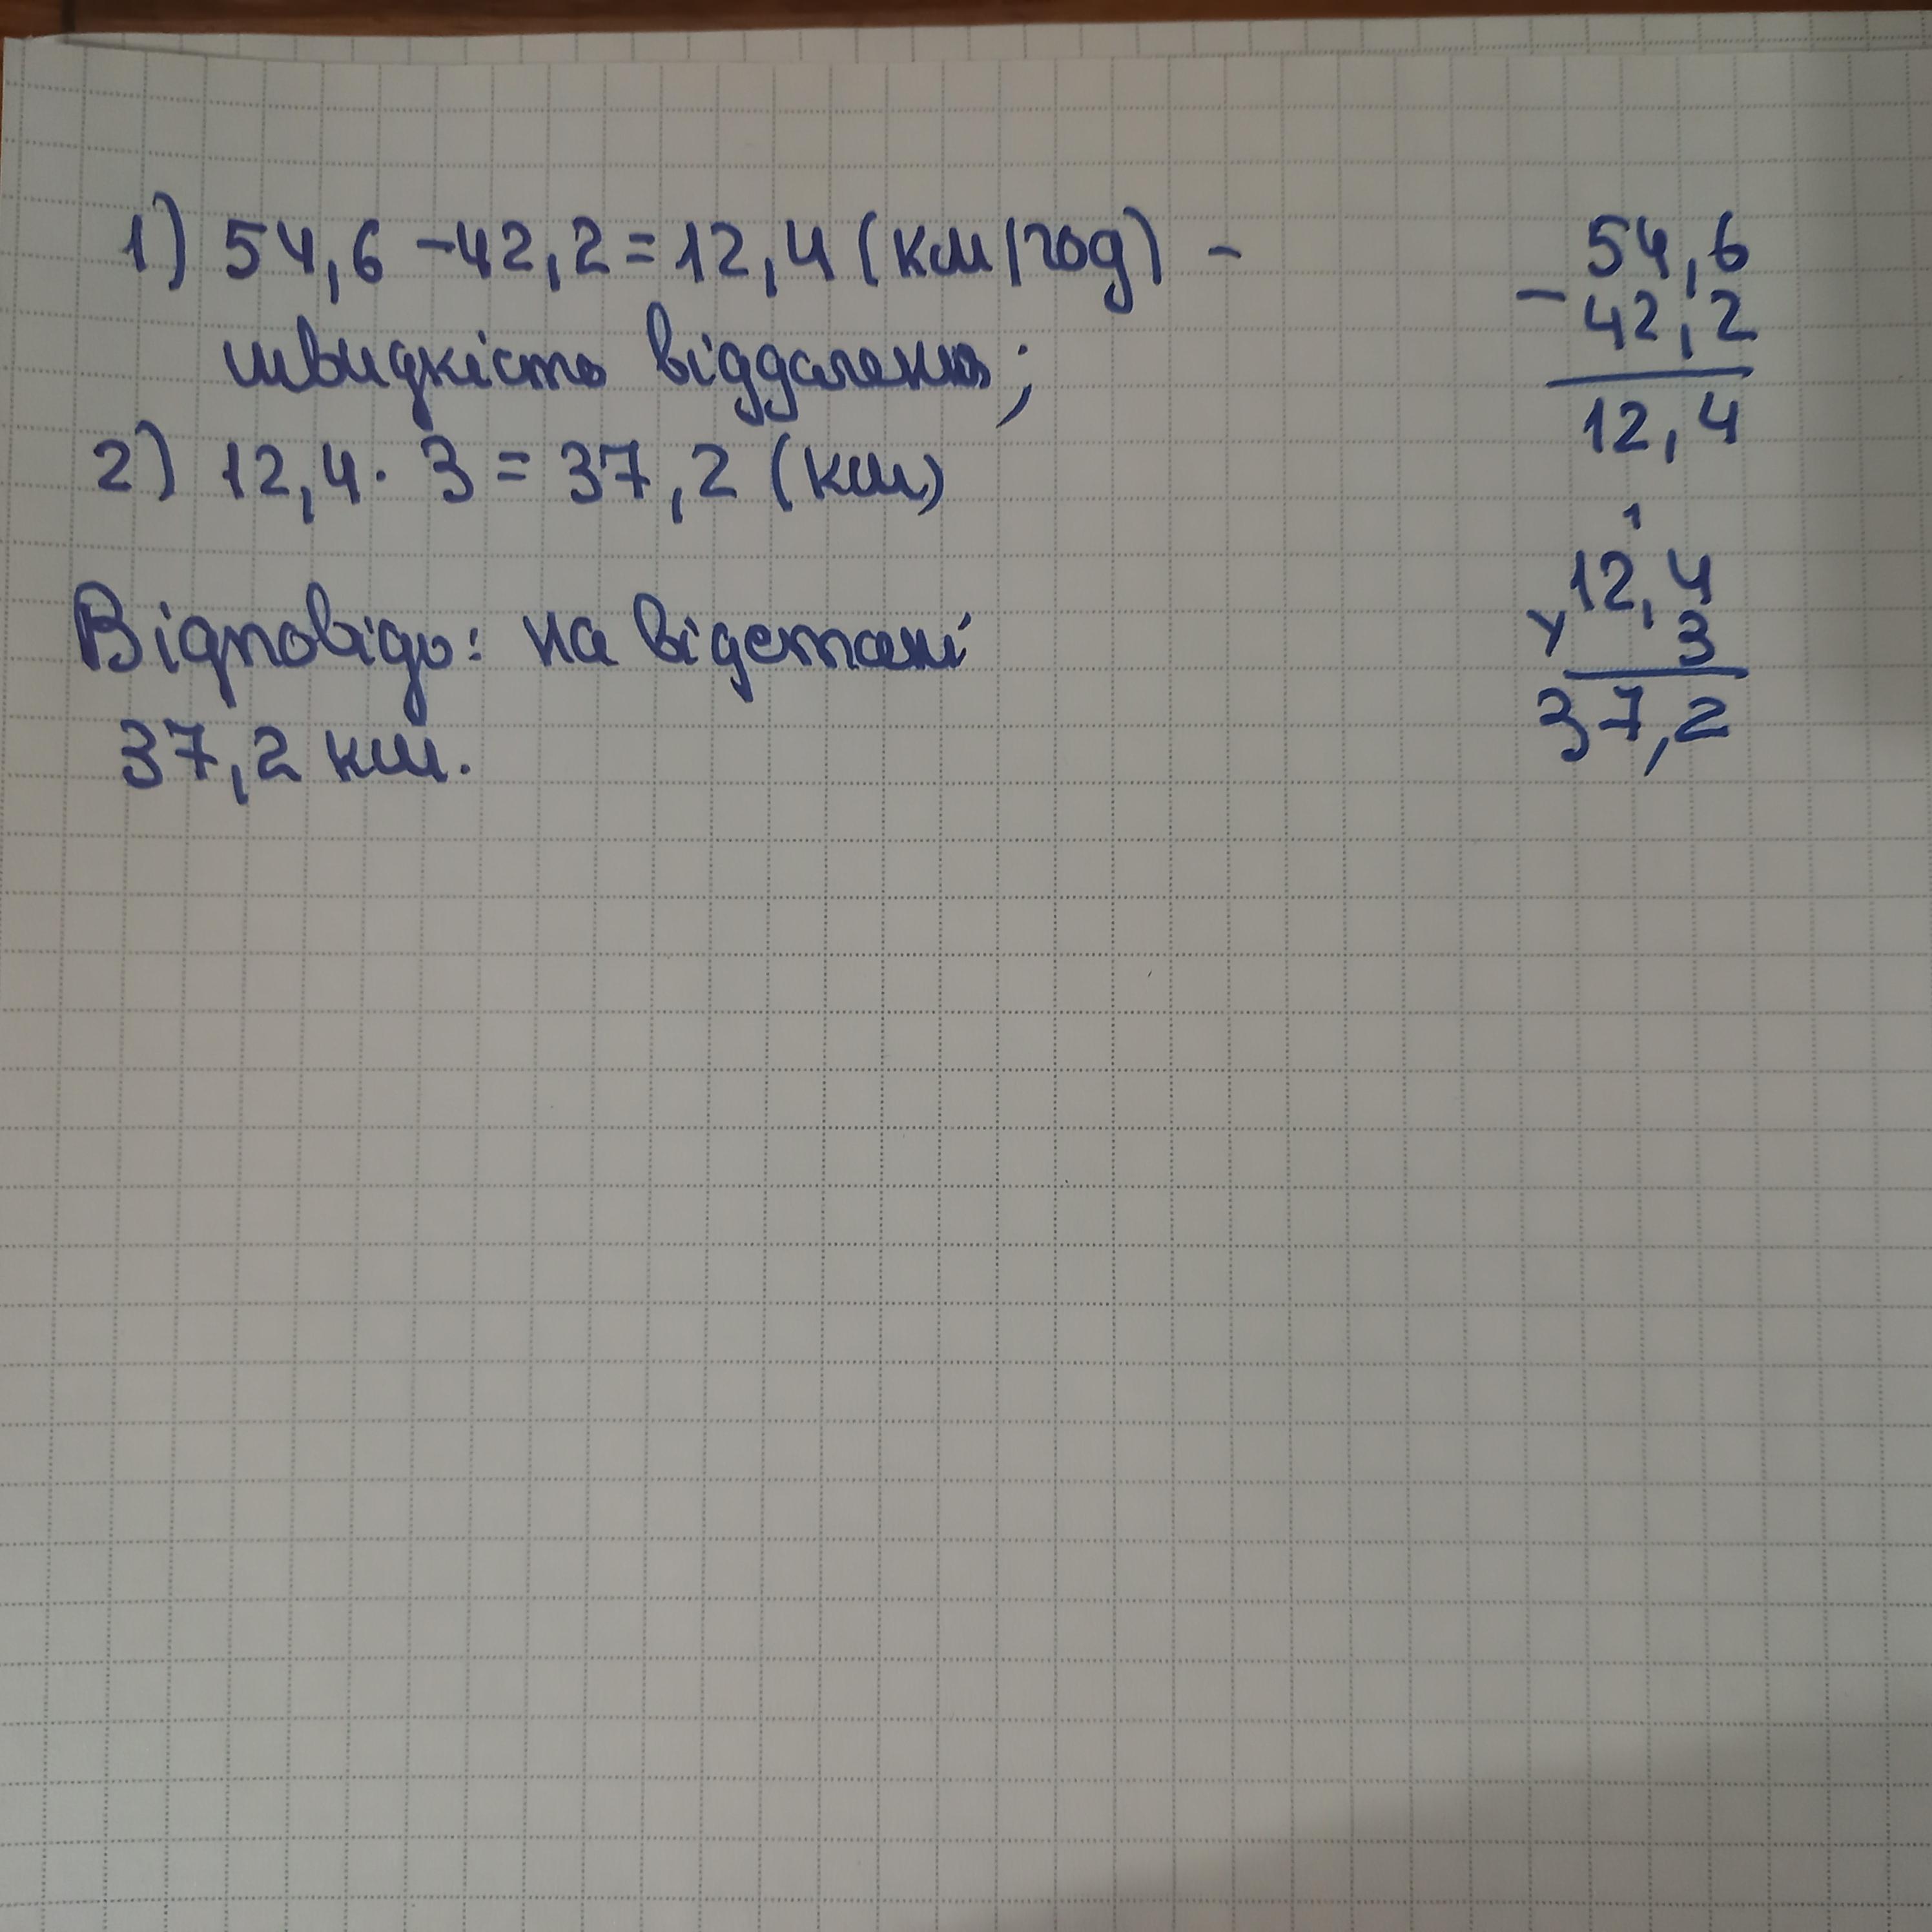 1) 54,6 - 42,2 = 12,4 (км/год) -
швидкість віддалення;
2) 12,4 · 3 = 37,2 (км)
Відповідь: на відстані
37,2 км.
54,6
- 42,2
12,4
1
12,4
× 3
37,2